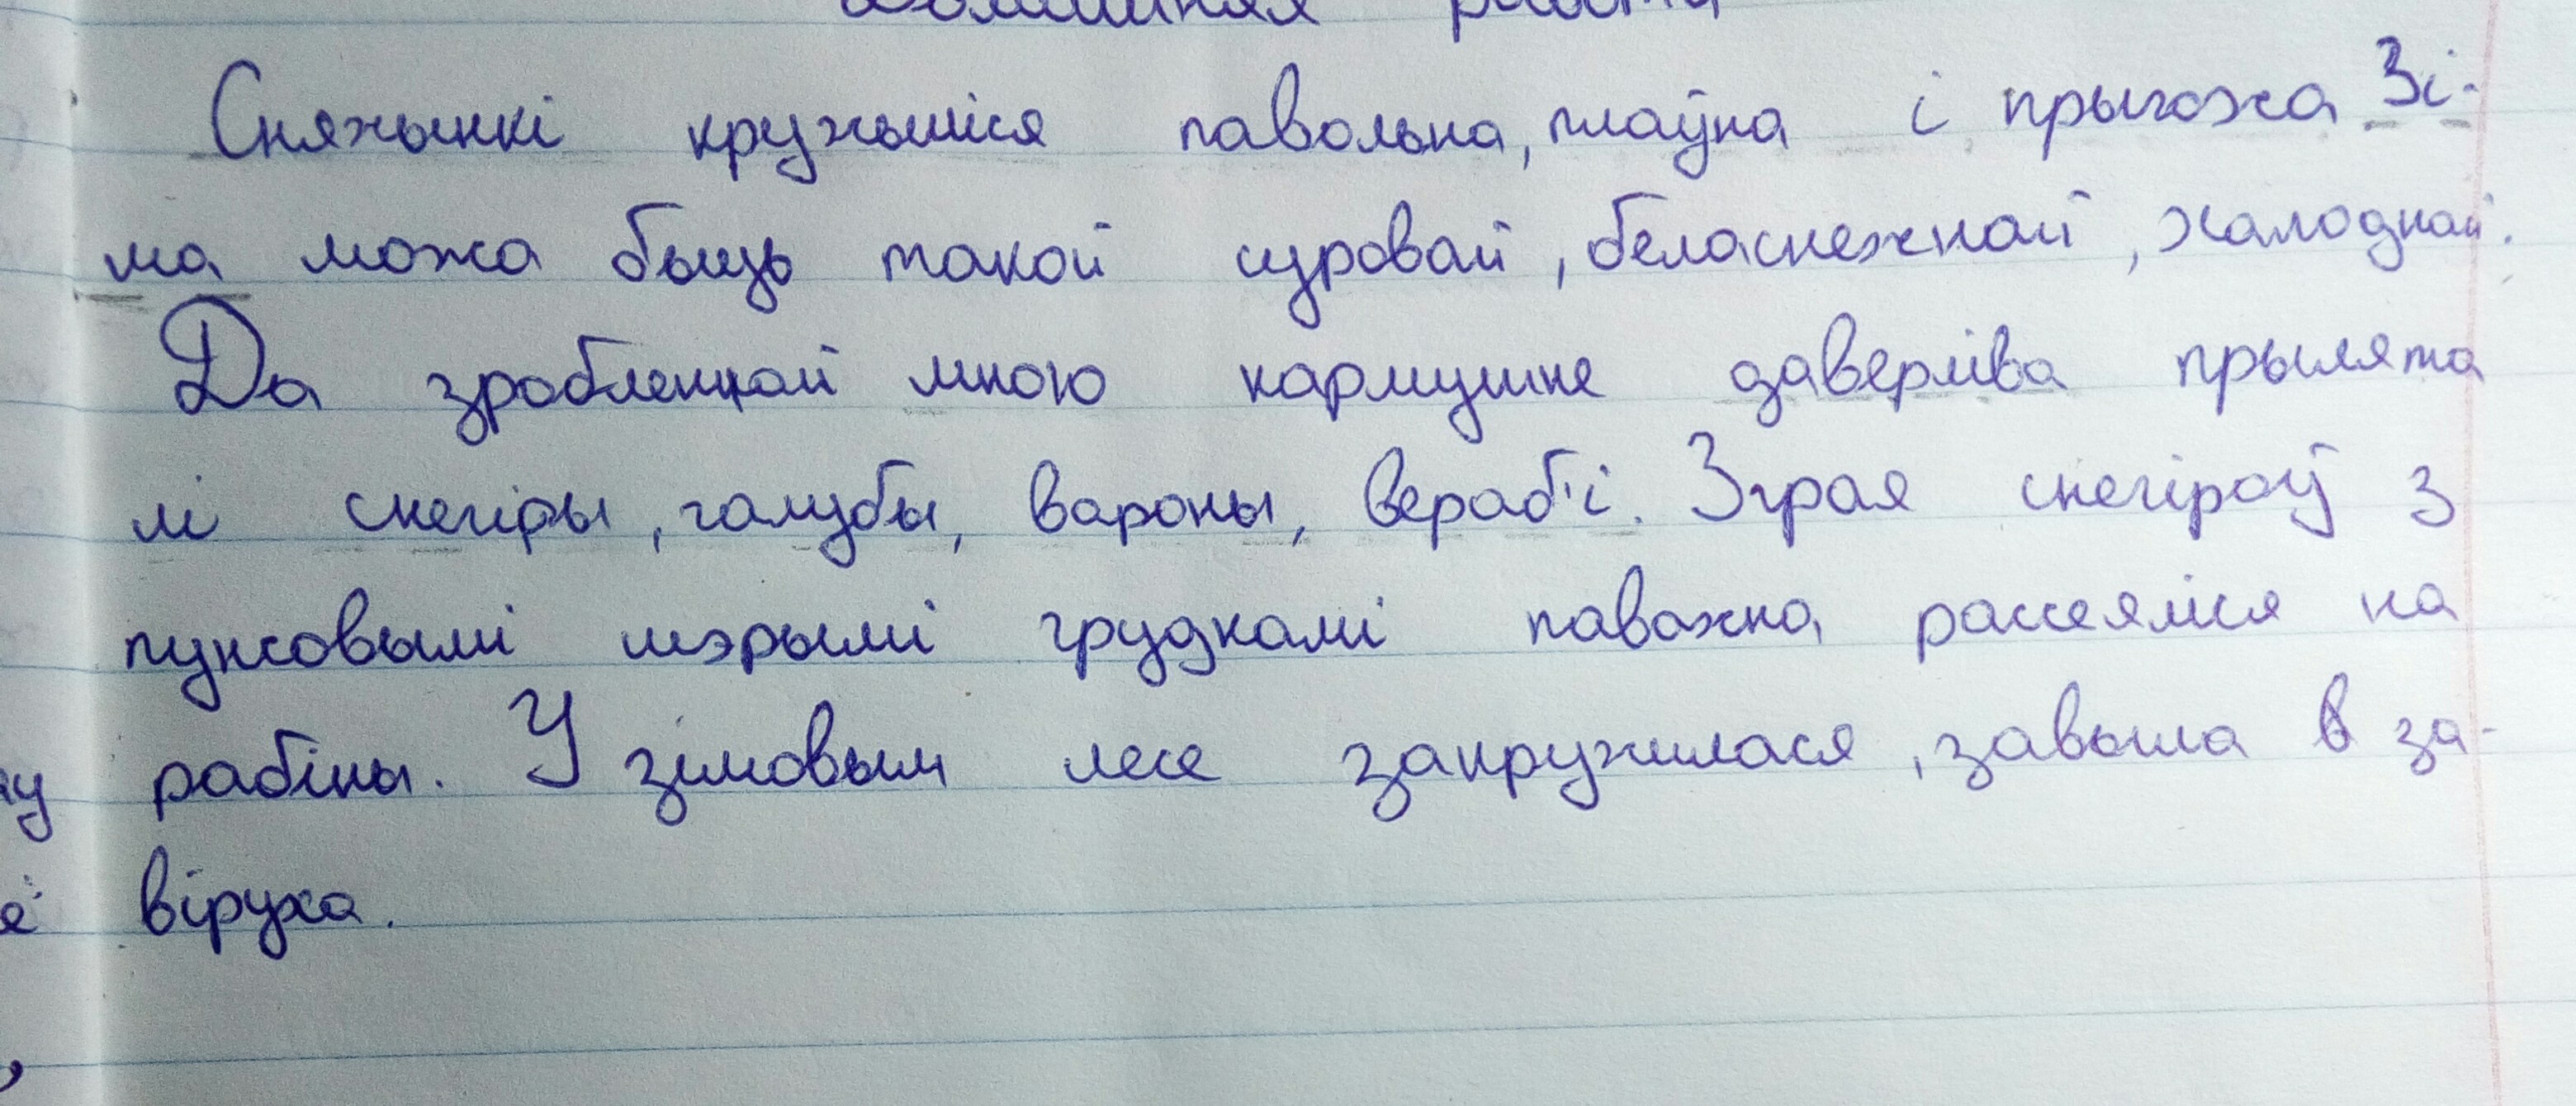 Домашняя работа
Сняжынкі кружыліся павольна, плаўна і прыгожа Зі-
ма можа быць такой суровай, беласнежнай, халоднай.
Да зробленнай мною кармушке даверліва прылята
лі снегіры, галубы, вароны, вераб'і. Зграя снегіроў з
пунсовымі шэрымі грудкамі паважна рассеяліся на
рабіны. У зімовым лесе закружилася, завыла в за-
віруха.